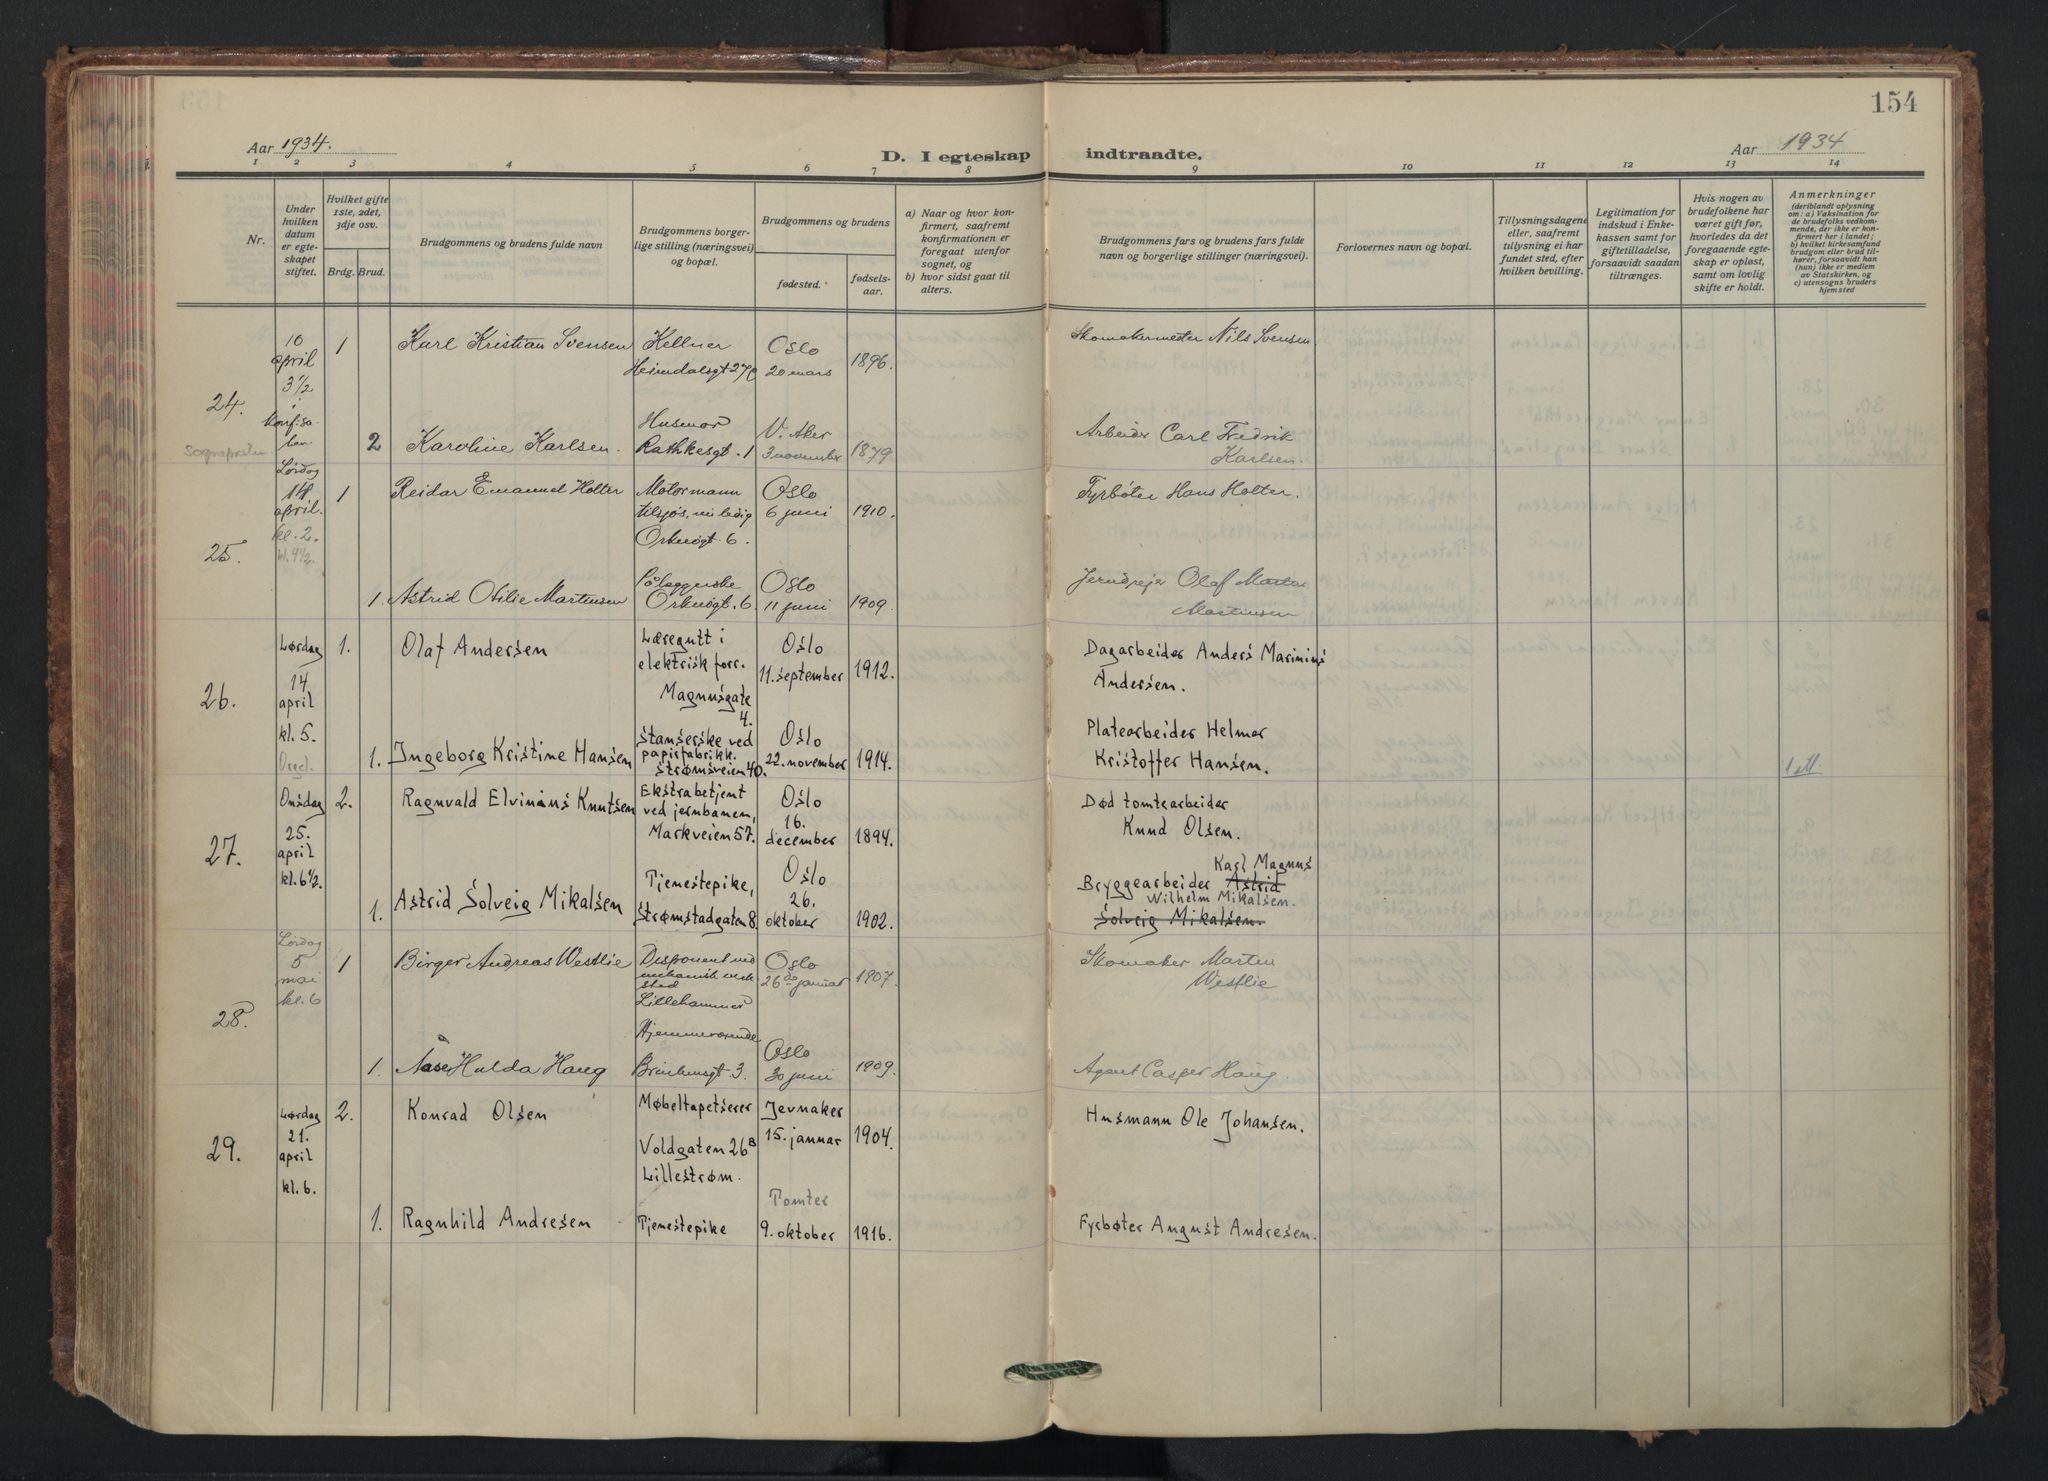 154
Aar 1934.
D. I egteskap indtraadte.
Aar 1934
1 2 3 4 5 6 7 8 9 10 11 12 13 14
Nr.
Under hvilken datum er egteskapet stiftet.
Hvilket gifte 1ste, 2det, 3dje osv.
Brdg. Brud.
Brudgommens og brudens fulde navn
Brudgommens borgerlige stilling (næringsvei) og bopæl.
Brudgommens og brudens
fødested.
fødselsaar.
a) Naar og hvor konfirmert, saafremt konfirmationen er foregaat utenfor sognet, og
b) hvor sidst gaat til alters.
Brudgommens fars og brudens fars fulde navn og borgerlige stillinger (næringsvei).
Forlovernes navn og bopæl.
Tillysningsdagene eller, saafremt tillysning ei har fundet sted, efter hvilken bevilling.
Legitimation for indskud i Enkekassen samt for giftetilladelse, forsaavidt saadan tiltrænges.
Hvis nogen av brudefolkene har været gift før, hvorledes da det foregaaende egteskap er opløst, samt om lovlig skifte er holdt.
Anmerkninger
(deriblandt oplysning om: a) Vaksination for de brudefolks vedkommende, der ikke er konfirmert her i landet; b) hvilket kirkesamfund brudgom eller brud tilhører, forsaavidt han (hun) ikke er medlem av Statskirken, og c) utensogns bruders hjemsted
24.
10 april 3½ i konf.salen.
1 Karl Kristian Svensen Kellner Heimdalsgt 27 Oslo 20 mars 1896. Skomakermester Nils Svensen
2 Karoline Karlsen. Husmor Rathkesgt. 1 V. Aker 3 november 1879 Arbeider Carl Fredrik Karlsen.
25.
Lørdag 14 april. kl. 2. kl. 4½.
1 Reidar Emanuel Holter Motormann tilsjøs, nu ledig Orknøgt. 6. Oslo 6 juni 1910. Fyrbøter Hans Holter.
1. Astrid Otilie Martinsen Orknøgt. 6. Oslo 11 juni 1909. Olaf Martinsen
26.
Lørdag 14 april kl. 5.
1. Olaf Andersen Læregutt i elektrisk forr. Magnusgate 4. Oslo 11. september 1912. Dagarbeider Anders Marinius Andersen.
1. Ingeborg Kristine Hansen Stanserske ved papirfabrikk. Strømsveien 40. Oslo 22. november 1914. Platearbeider Helmer Kristoffer Hansen.
27.
Onsdag 25. april kl. 6½.
2. Ragnvald Elvinius Knutsen Ekstrabetjent ved jernbanen, Markveien 57. Oslo 16. december 1894. Død tomtearbeider Knud Olsen.
1. Astrid Solveig Mikalsen Tjenestepike, Strømstadgaten 8. Oslo 26. oktober 1902. Bryggearbeider Astrid Solveig Mikalsen. Karl Magnus Wilhelm Mikalsen.
28.
Lørdag 5 mai kl. 6
1 Birger Andreas Westlie Disponent ved mekanisk verksted Lillehammer Oslo 26de januar 1907. Skomaker Martin Westlie
1. Aase Hulda Haug Hjemmeværende Brinkensgt 3. Oslo 30 juni 1909. Agent Casper Haug.
29.
Lørdag 21. april kl. 6.
2. Konrad Olsen Møbeltapetserer Voldgaten 26B Lillestrøm. Jevnaker 15. januar 1904. Husmann Ole Johansen.
1. Ragnhild Andresen Tjenestepike Tomter 9. oktober 1916. Fyrbøter August Andresen.